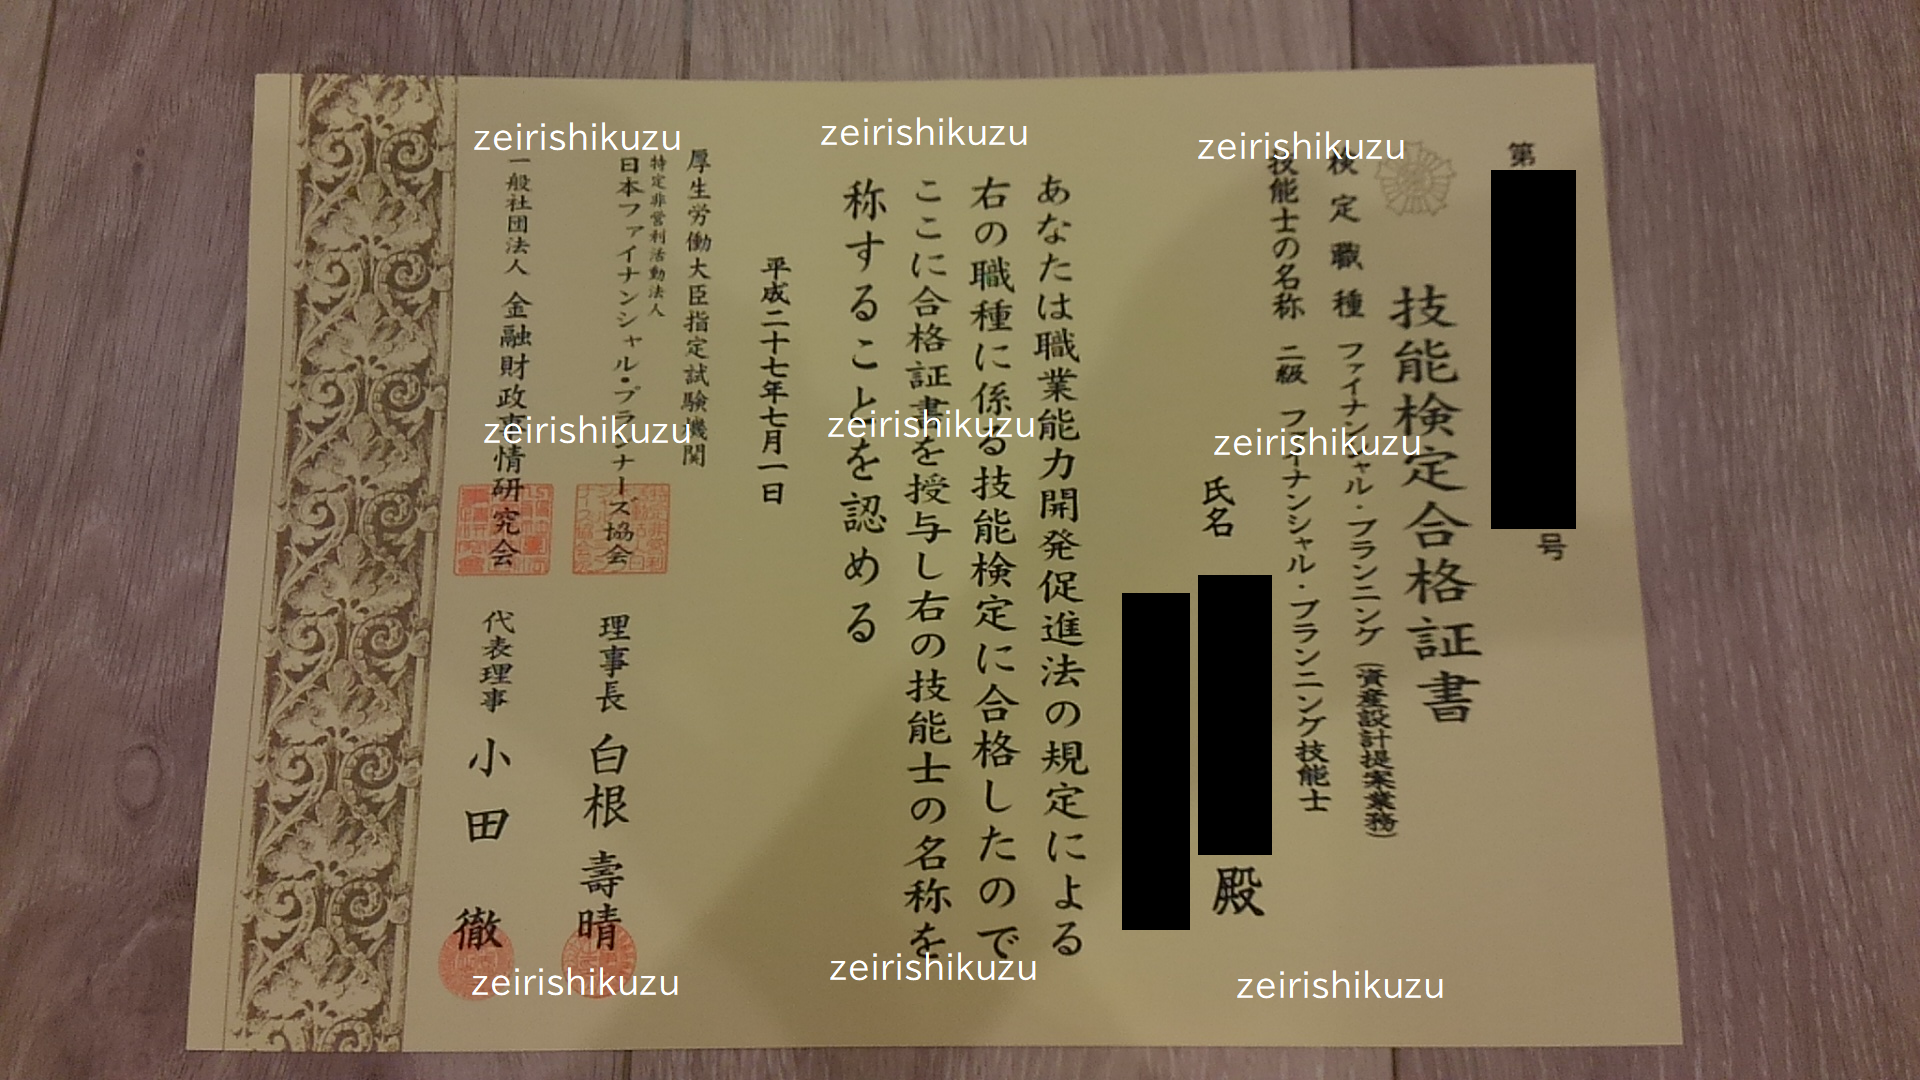 第
号
技能検定合格証書
検定職種 ファイナンシャル・プランニング (資産設計提案業務)
技能士の名称 二級 ファイナンシャル・プランニング技能士
氏名
殿
あなたは職業能力開発促進法の規定による
右の職種に係る技能検定に合格したので
ここに合格証書を授与し右の技能士の名称を
称することを認める
平成二十七年七月一日
厚生労働大臣指定試験機関
特定非営利活動法人
日本ファイナンシャル・プランナーズ協会 理事長 白根 壽晴
一般社団法人 金融財政事情研究会 代表理事 小田 徹
zeirishikuzu
zeirishikuzu
zeirishikuzu
zeirishikuzu
zeirishikuzu
zeirishikuzu
zeirishikuzu
zeirishikuzu
zeirishikuzu